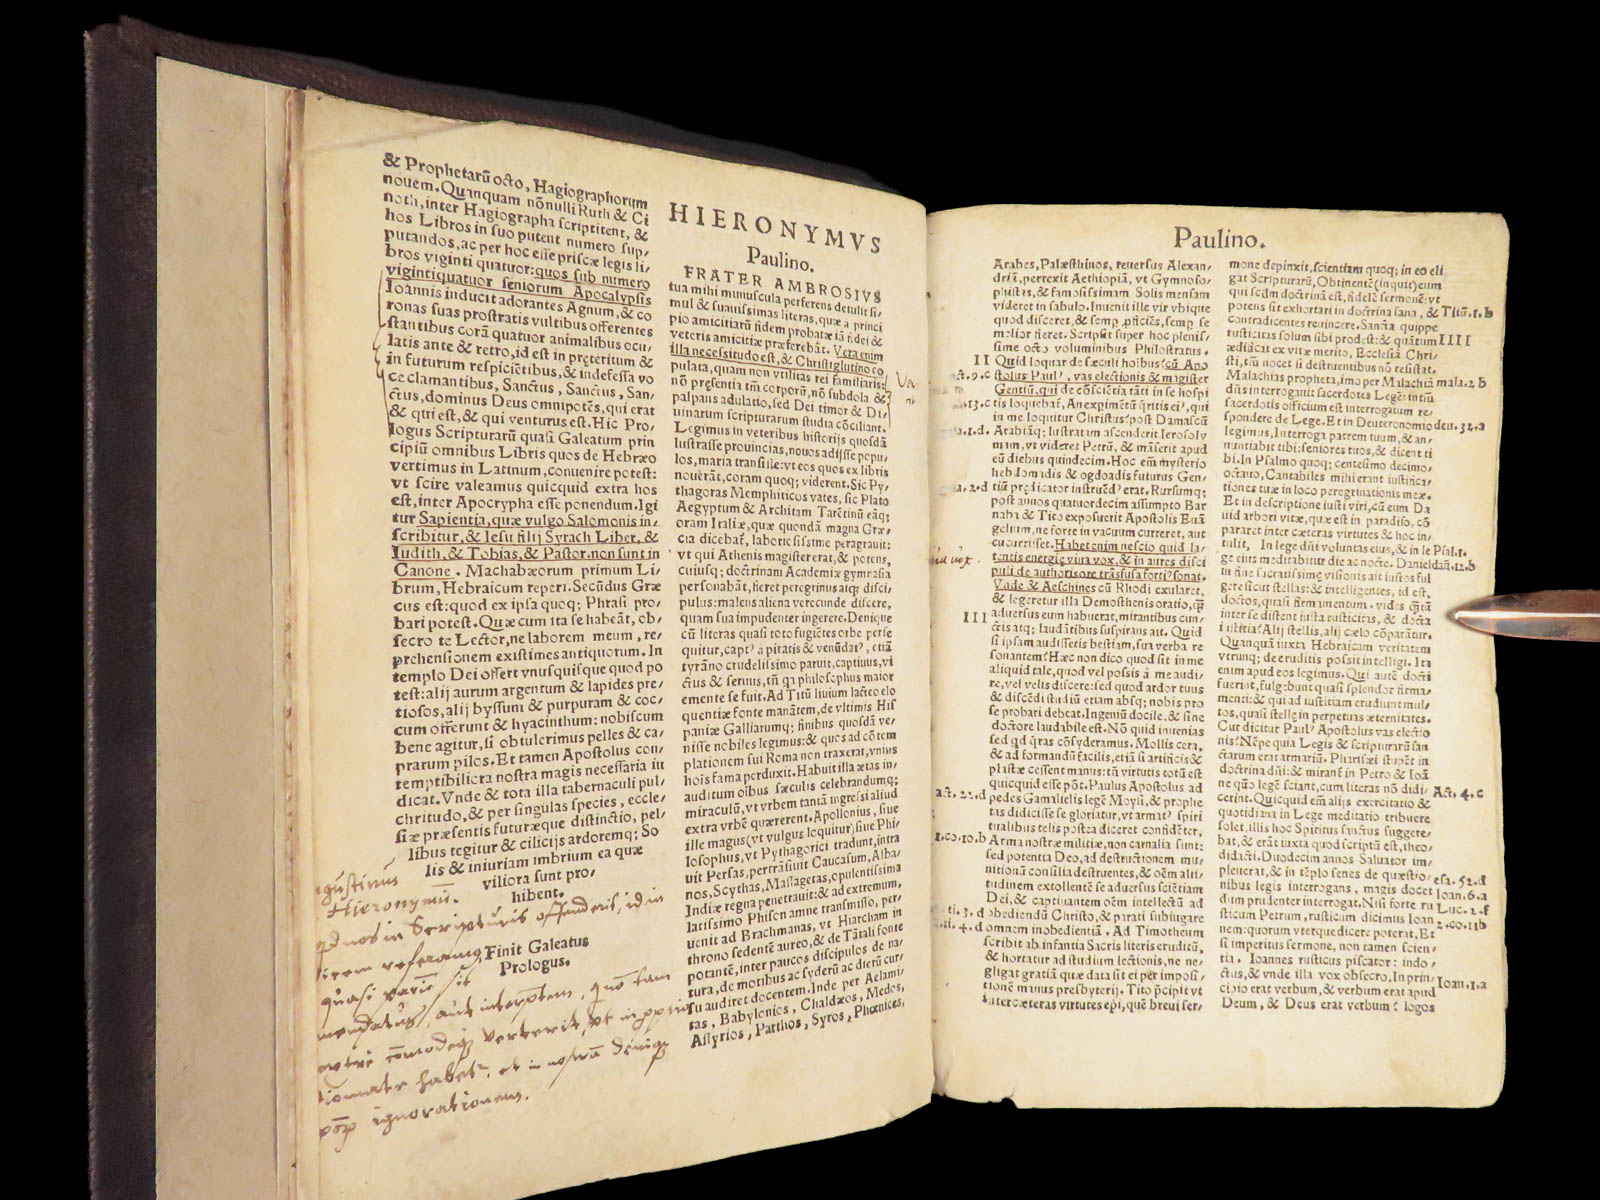 & Prophetarũ octo, Hagiographorum
nouem. Quanquam nõnulli Ruth & Ci
noth, inter Hagiographa scriptitent, &
hos Libros in suo putent numero sup/
putandos, ac per hoc esse priscæ legis li/
bros viginti quatuor: quos sub numero
vigintiquatuor seniorum Apocalypsis
Ioannis inducit adorantes Agnum, & co
ronas suas prostratis vultibus offerentes
stantibus corã quatuor animalibus ocu/
latis ante & retro, id est in præteritum &
in futurum respiciẽtibus, & indefessa vo
ce clamantibus, Sanctus, Sanctus, San/
ctus, dominus Deus omnipotẽs, qui erat
& qui est, & qui venturus est. Hic Pro/
logus Scripturarũ quasi Galeatum prin
cipiũ omnibus Libris quos de Hebræo
vertimus in Latinum, conuenire potest:
vt scire valeamus quicquid extra hos
est, inter Apocrypha esse ponendum. Igi
tur Sapientia, quæ vulgo Salomonis in/
scribitur, & Iesu filij Syrach Liber, &
Iudith, & Tobias, & Pastor. non sunt in
Canone. Machabæorum primum Li/
brum, Hebraicum reperi. Secũdus Græ
cus est: quod ex ipsa quoq; Phrasi pro/
bari potest. Quæ cum ita se habeãt, ob/
secro te Lector, ne laborem meum, re/
prehensionem existimes antiquorum. In
templo Dei offert vnusquisque quod po
test: alij aurum argentum & lapides pre/
tiosos, alij byssum & purpuram & coc/
cum offerunt & hyacinthum: nobiscum
bene agitur, si obtulerimus pelles & ca/
prarum pilos. Et tamen Apostolus con/
temptibiliora nostra magis necessaria iu
dicat. Vnde & tota illa tabernaculi pul/
chritudo, & per singulas species, eccle/
siæ præsentis futuræque distinctio, pel/
libus tegitur & cilicijs ardoremq; So
lis & iniuriam imbrium ea quæ
viliora sunt pro/
hibent.
Finit Galeatus
Prologus.
gustinus
Hieronymũ.
in Scripturis offenderis, id in
quasi
ignorationem.
HIERONYMVS
Paulino.
FRATER AMBROSIVS
tua mihi munuscula perferens detulit si/
mul & suauissimas literas, quæ a princi
pio amicitiarũ fidem probatæ iã fidei &
veteris amicitiæ præferebãt. Vera enim
illa necessitudo est, & Christi glutino co
pulata, quam non vtilitas rei familiaris:
nõ presentia tm̃ corporũ, nõ subdola &
palpans adulatio, sed Dei timor & Di/
uinarum scripturarum studia cõciliant.
Legimus in veteribus historijs quosdã
lustrasse prouincias, nouos adijsse popu/
los, maria transisse: vt eos quos ex libris
nouerãt, coram quoq; viderent. Sic Py/
thagoras Memphiticos vates, sic Plato
Aegyptum & Architam Tarẽtinũ eãq;
oram Italiæ, quæ quondã magna Græ/
cia dicebaf, laboriosissime peragrauit:
vt qui Athenis magister erat, & potens,
cuiusq; doctrinam Academiæ gymnasia
personabãt, fieret peregrinus atq; disci/
pulus: malens aliena verecunde discere,
quam sua impudenter ingerere. Denique
cũ literas quasi toto fugiẽtes orbe perse
quitur, capt' a piratis & venũdat', etiã
tyrãno crudelissimo paruit, captiuus, vi
ctus & seruus, tñ qa philosophus maior
emente se fuit. Ad Titũ liuium lacteo elo
quentiæ fonte manãtem, de vltimis His
paniæ Galliarumq; finibus quosdã ve/
nisse nobiles legimus: & quos ad cõtem
plationem sui Roma non traxerat, vnius
hois fama perduxit. Habuit illa ætas in/
auditum oĩbus sæculis celebrandumq;
miraculũ, vt vrbem tantã ingressi aliud
extra vrbẽ quærerent. Apollonius, siue
ille magus (vt vulgus loquitur) siue Phi/
losophus, vt Pythagorici tradunt, intra
uit Persas, pertrãsiuit Caucasum, Alba/
nos, Scythas, Massagetas, opulentissima
Indiæ regna penetrauit: & ad extremum,
latissimo Phison amne transmisso, per/
uenit ad Brachmanas, vt Hiarcham in
throno sedentẽ aureo, & de Tãtali fonte
potantẽ, inter paucos discipulos de na/
tura, de motibus ac syderũ ac dierũ cur/
su audiret docentem. Inde per Aelami/
tas, Babylonios, Chaldæos, Medos,
Assyrios, Parthos, Syros, Phœnices,
Paulino.
Arabes, Palæsthinos, reuersus Alexan/
driã, perrexit Aethiopiã, vt Gymnoso/
phistas, & famosissimam Solis mensam
videret in sabulo. Inuenit ille vir vbique
quod disceret, & semp̱ ꝓficiẽs, semp̱ se
melior fieret. Scripsit super hoc plenis/
sime octo voluminibus Philostratus.
II Quid loquar de sæculi hoĩbus? cũ Apo
act. 9. c stolus Paul', vas electionis & magister
Gentiũ, qui de cõscietia tãti in se hospi
13. c tis loquebaf, An expimẽtũ q̃ritis ei', qui
in me loquitur Christus? post Damascũ
1. d. Arabiãq; lustratam ascenderit Ierosoly
mam, vt videret Petrũ, & mãserit apud
eũ diebus quindecim. Hoc em̃ mysterio
hebdomadis & ogdoadis futurus Gen/
2. d tiũ predicator instruẽd' erat. Rursumq;
post annos quatuordecim assumpto Bar
naba & Tito exposuerit Apostolis Euã
gelium, ne forte in vacuum curreret, aut
cucurrisset. Habet enim nescio quid la/
tentis energię viua vox, & in aures disci
puli de authoris ore trãsfusa forti' sonat.
Vnde & Aeschines cũ Rhodi exularet,
& legeretur illa Demosthenis oratio, q̃
III aduersus eum habuerat, mirantibus cun/
ctis atq; laudãtibus suspirans ait. Quid
si ipsam audissetis bestiam, sua verba re
sonantem? Hæc non dico quod sit in me
aliquid tale, quod vel possis à me audi/
re, vel velis discere: sed quod ardor tuus
& discẽdi studiũ etiam absq; nobis pro
se probari debeat. Ingeniũ docile, & sine
doctore laudabile est. Nõ quid inuenias
sed qd q̃ras cõsyderamus. Mollis cera,
& ad formandũ facilis, etiã si artificis &
plastæ cessent manus: tñ virtutis totũ est
quicquid esse põt. Paulus Apostolus ad
act. 22. d pedes Gamalielis legẽ Moysi, & prophe
tas didicisse se gloriatur, vt armat' spiri
tualibus telis postea diceret confidẽter.
1. co. 10. b Arma nostræ militiæ, non carnalia sunt:
sed potentia Deo, ad destructionem mu/
nitionũ consilia destruentes, & oẽm alti/
tudinem extollentẽ se aduersus sciẽtiam
Dei, & captiuantem oẽm intellectũ ad
ti. 3. d obediendũ Christo, & parati subiugare
4. d omnem inobedientiã. Ad Timotheum
scribit ab infantia Sacris literis eruditũ,
& hortatur ad studium lectionis, ne ne/
gligat gratiã quę data sit ei per imposi/
tionẽ manus presbyterij. Tito p̃cipit vt
inter cæteras virtutes epi, quẽ breui ser/
mone depinxit, scientiam quoq; in eo eli
gat Scripturarũ, Obtinentẽ (inquit) eum
qui secdm doctrinã est, fidelẽ sermonẽ: vt
potens sit exhortari in doctrina sana, & Titũ. 1. b
contradicentes reuincere. Sancta quippe
rusticitas solum sibi prodest: & quãtum IIII
ædificat ex vitæ merito, Ecclesiã Chri/
sti, tm̃ nocet si destruentibus nõ resistat.
Malachias propheta, imo per Malachiã mala. 2. b
dñs interroganit sacerdotes Legẽ: intm̃
sacerdotis officium est interrogatum re/
spondere de Lege. Et in Deuteronomio deu. 32. a
legimus, Interroga patrem tuum, & an/
nuntiabit tibi: seniores tuos, & dicent ti
bi. In Psalmo quoq; centesimo decimo/
octauo, Cantabiles mihi erant iustifica/
tiones tuæ in loco peregrinationis meæ.
Et in descriptione iusti viri, cũ eum Da
uid arbori vitæ, quæ est in paradiso, cõ
pararet inter cæteras virtutes & hoc in/
tulit, In lege dñi voluntas eius, & in le Psal. 1.
ge eius meditabitur die ac nocte. Daniel dañ. 12. b
in fine sacratissimę visionis ait iustos ful
gere sicut stellas: & intelligentes, id est,
doctos, quasi firmamentum. vides q̃tũ
inter se distent iusta rusticitas, & docta
iustitia? Alij stellis, alij cælo cõparãtur.
Quanquã iuxta Hebraicam veritatem
vtrunq; de eruditis possit intelligi. Ita
enim apud eos legimus. Qui autẽ docti
fuerint, fulgebunt quasi splendor firma/
menti: & qui ad iustitiam erudiunt mul/
tos, quasi stellę in perpetuas æternitates.
Cur dicitur Paul' Apostolus vas electio
nis? Nẽpe quia Legis & scripturarũ san
ctarum erat armariũ. Pharisæi stupẽt in
doctrina dñi: & miranf in Petro & Ioã
ne quõ legẽ sciant, cum literas nõ didi/ Act. 4. c
cerint. Quicquid em̃ alijs exercitatio &
quotidiana in Lege meditatio tribuere
solet, illis hoc Spiritus sanctus suggere/
bat, & erãt iuxta quod scriptũ est, theo/
didacti. Duodecim annos Saluator im/
pleuerat, & in tẽplo senes de quæstio/ esa. 52. d
nibus legis interrogans, magis docet Ioan. 6. a
dum prudenter interrogat. Nisi forte ru Luc. 2. f
sticum Petrum, rusticum dicimus Ioan 2. co. 11b
nem: quorum vterque dicere poterat, Et
si imperitus sermone, non tamen scien/
tia. Ioannes rusticus piscator: indo/
ctus, & vnde illa vox obsecro, In prin/ Ioan. 1. a
cipio erat verbum, & verbum erat apud
Deum, & Deus erat verbum? logos